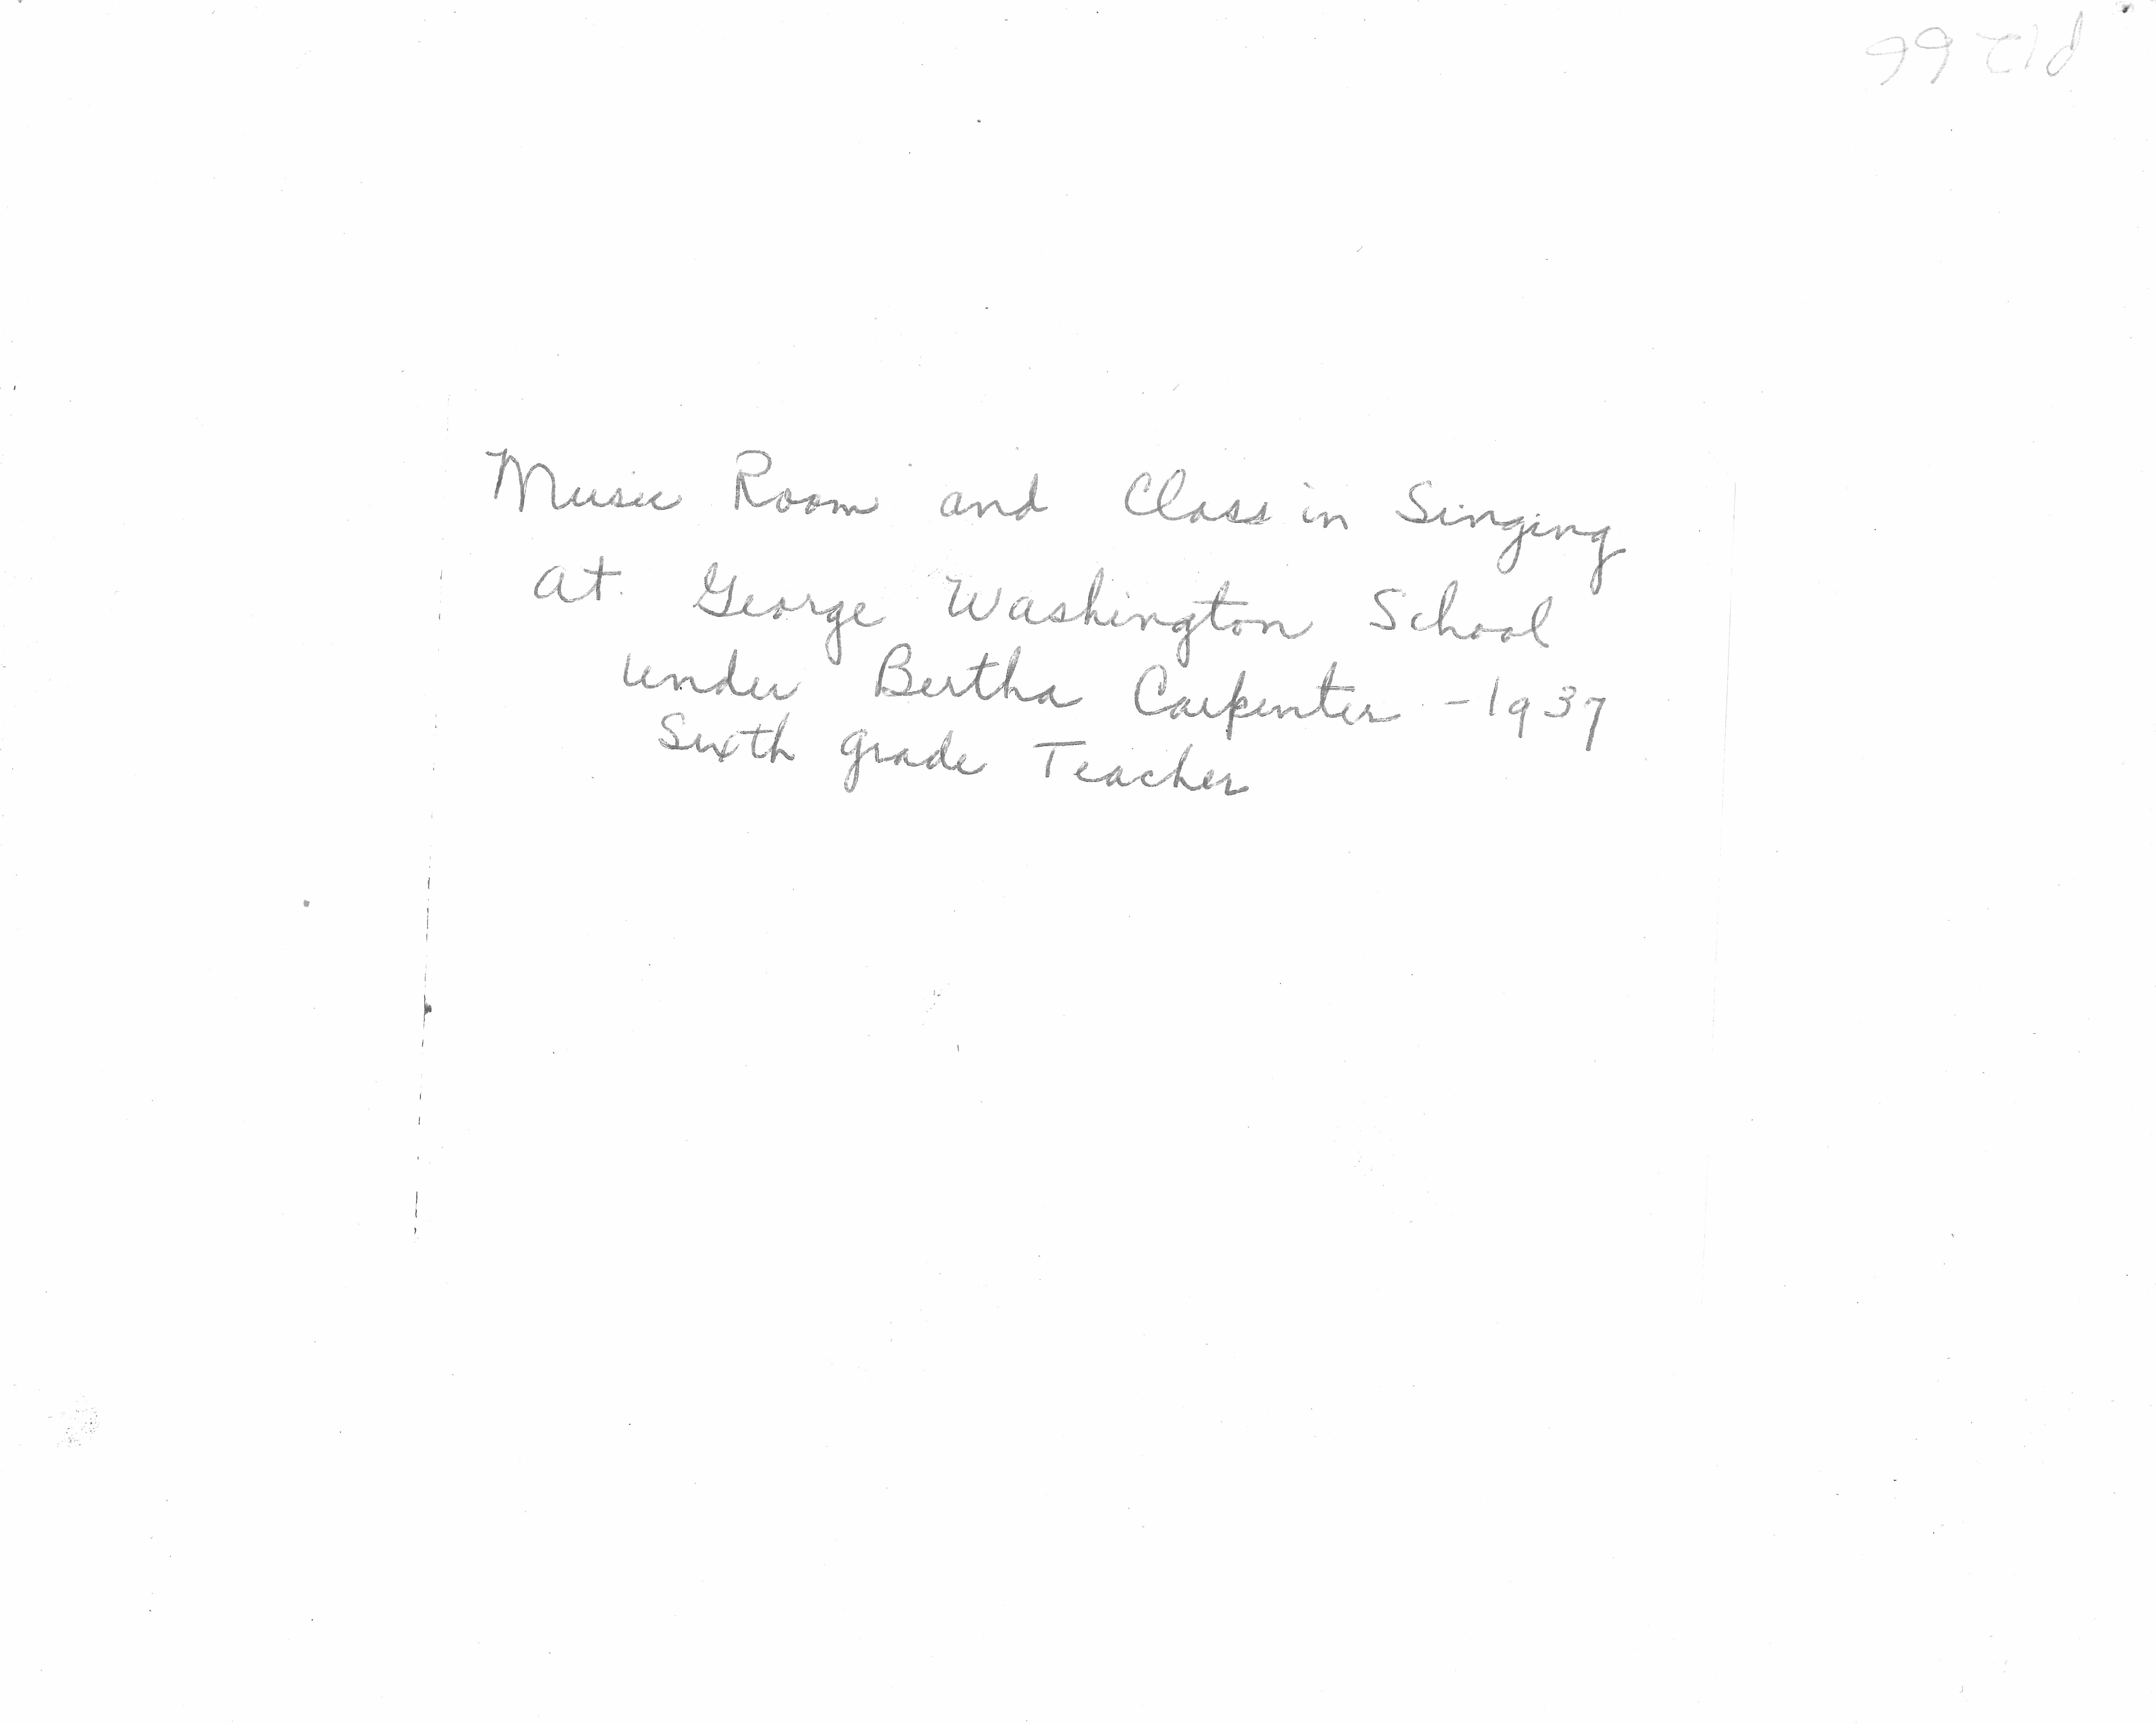 Music Room and Class in Singing
at George Washington School
under Bertha Carpenter - 1937
Sixth grade Teacher